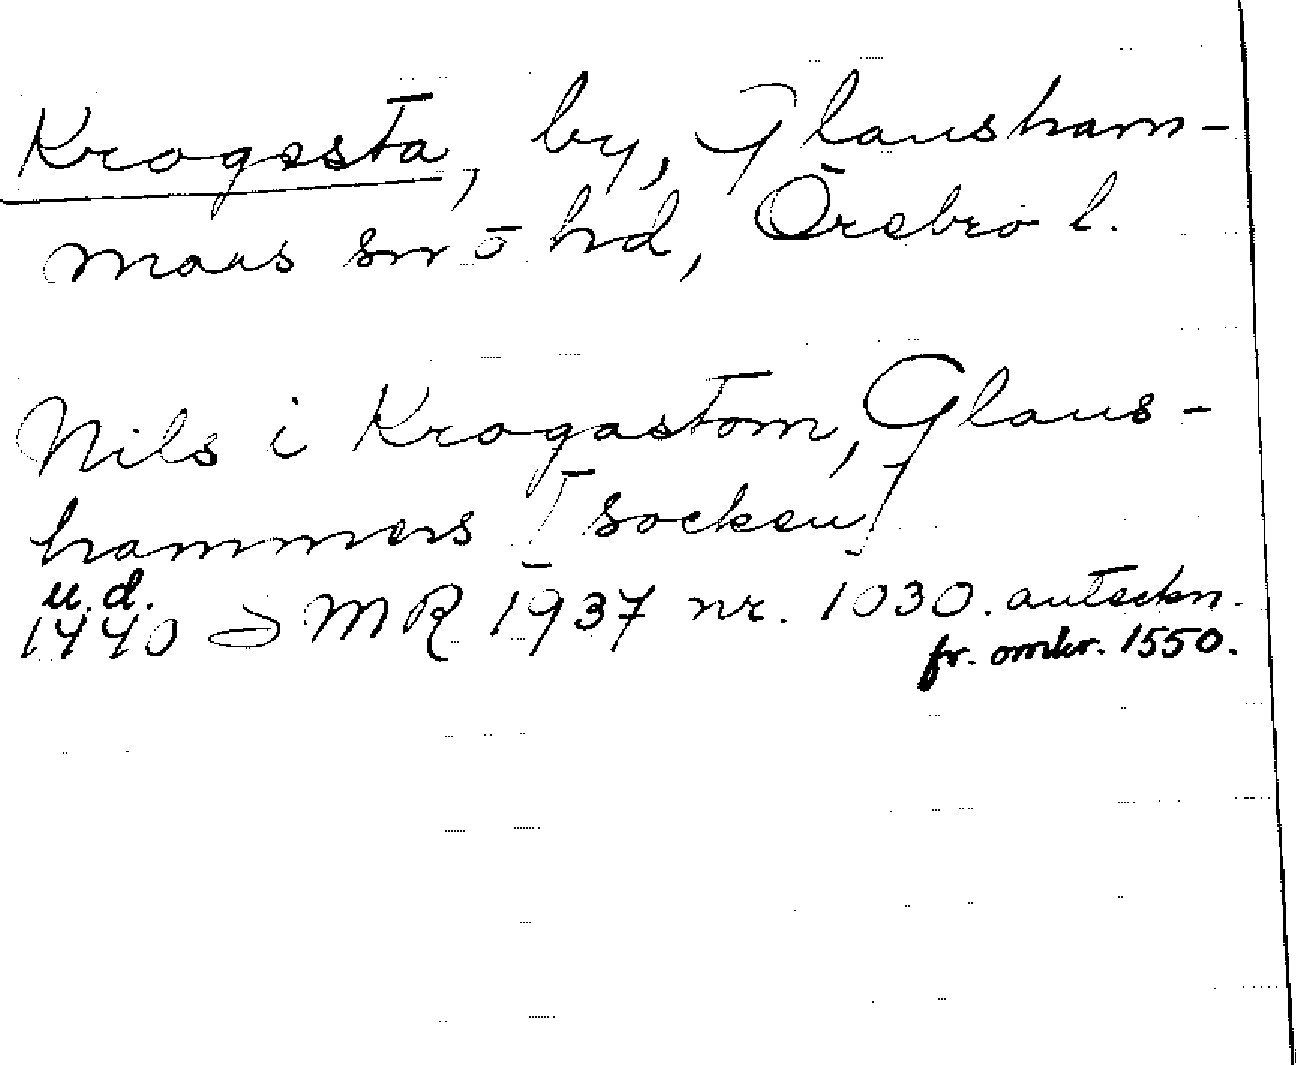 Krogesta, by, Glansham-
mars sn o hd, Örebro l.
Nils i Krogastom, Glans-
hammers [socken]
u.d.
1440 SMR 1937 nr. 1030. anteckn.
fr. omkr. 1550.